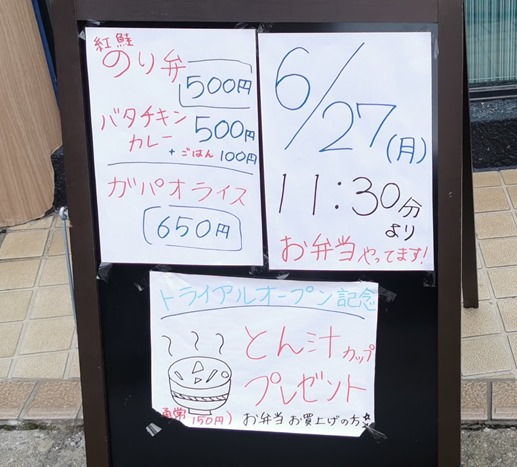 紅鮭
のり弁
500円
バタチキン
カレー 500円
+ごはん 100円
ガパオライス
650円
6/27(月)
11:30分
より
お弁当やってます!
トライアルオープン記念
とん汁カップ
プレゼント
通常150円)
お弁当お買上げの方